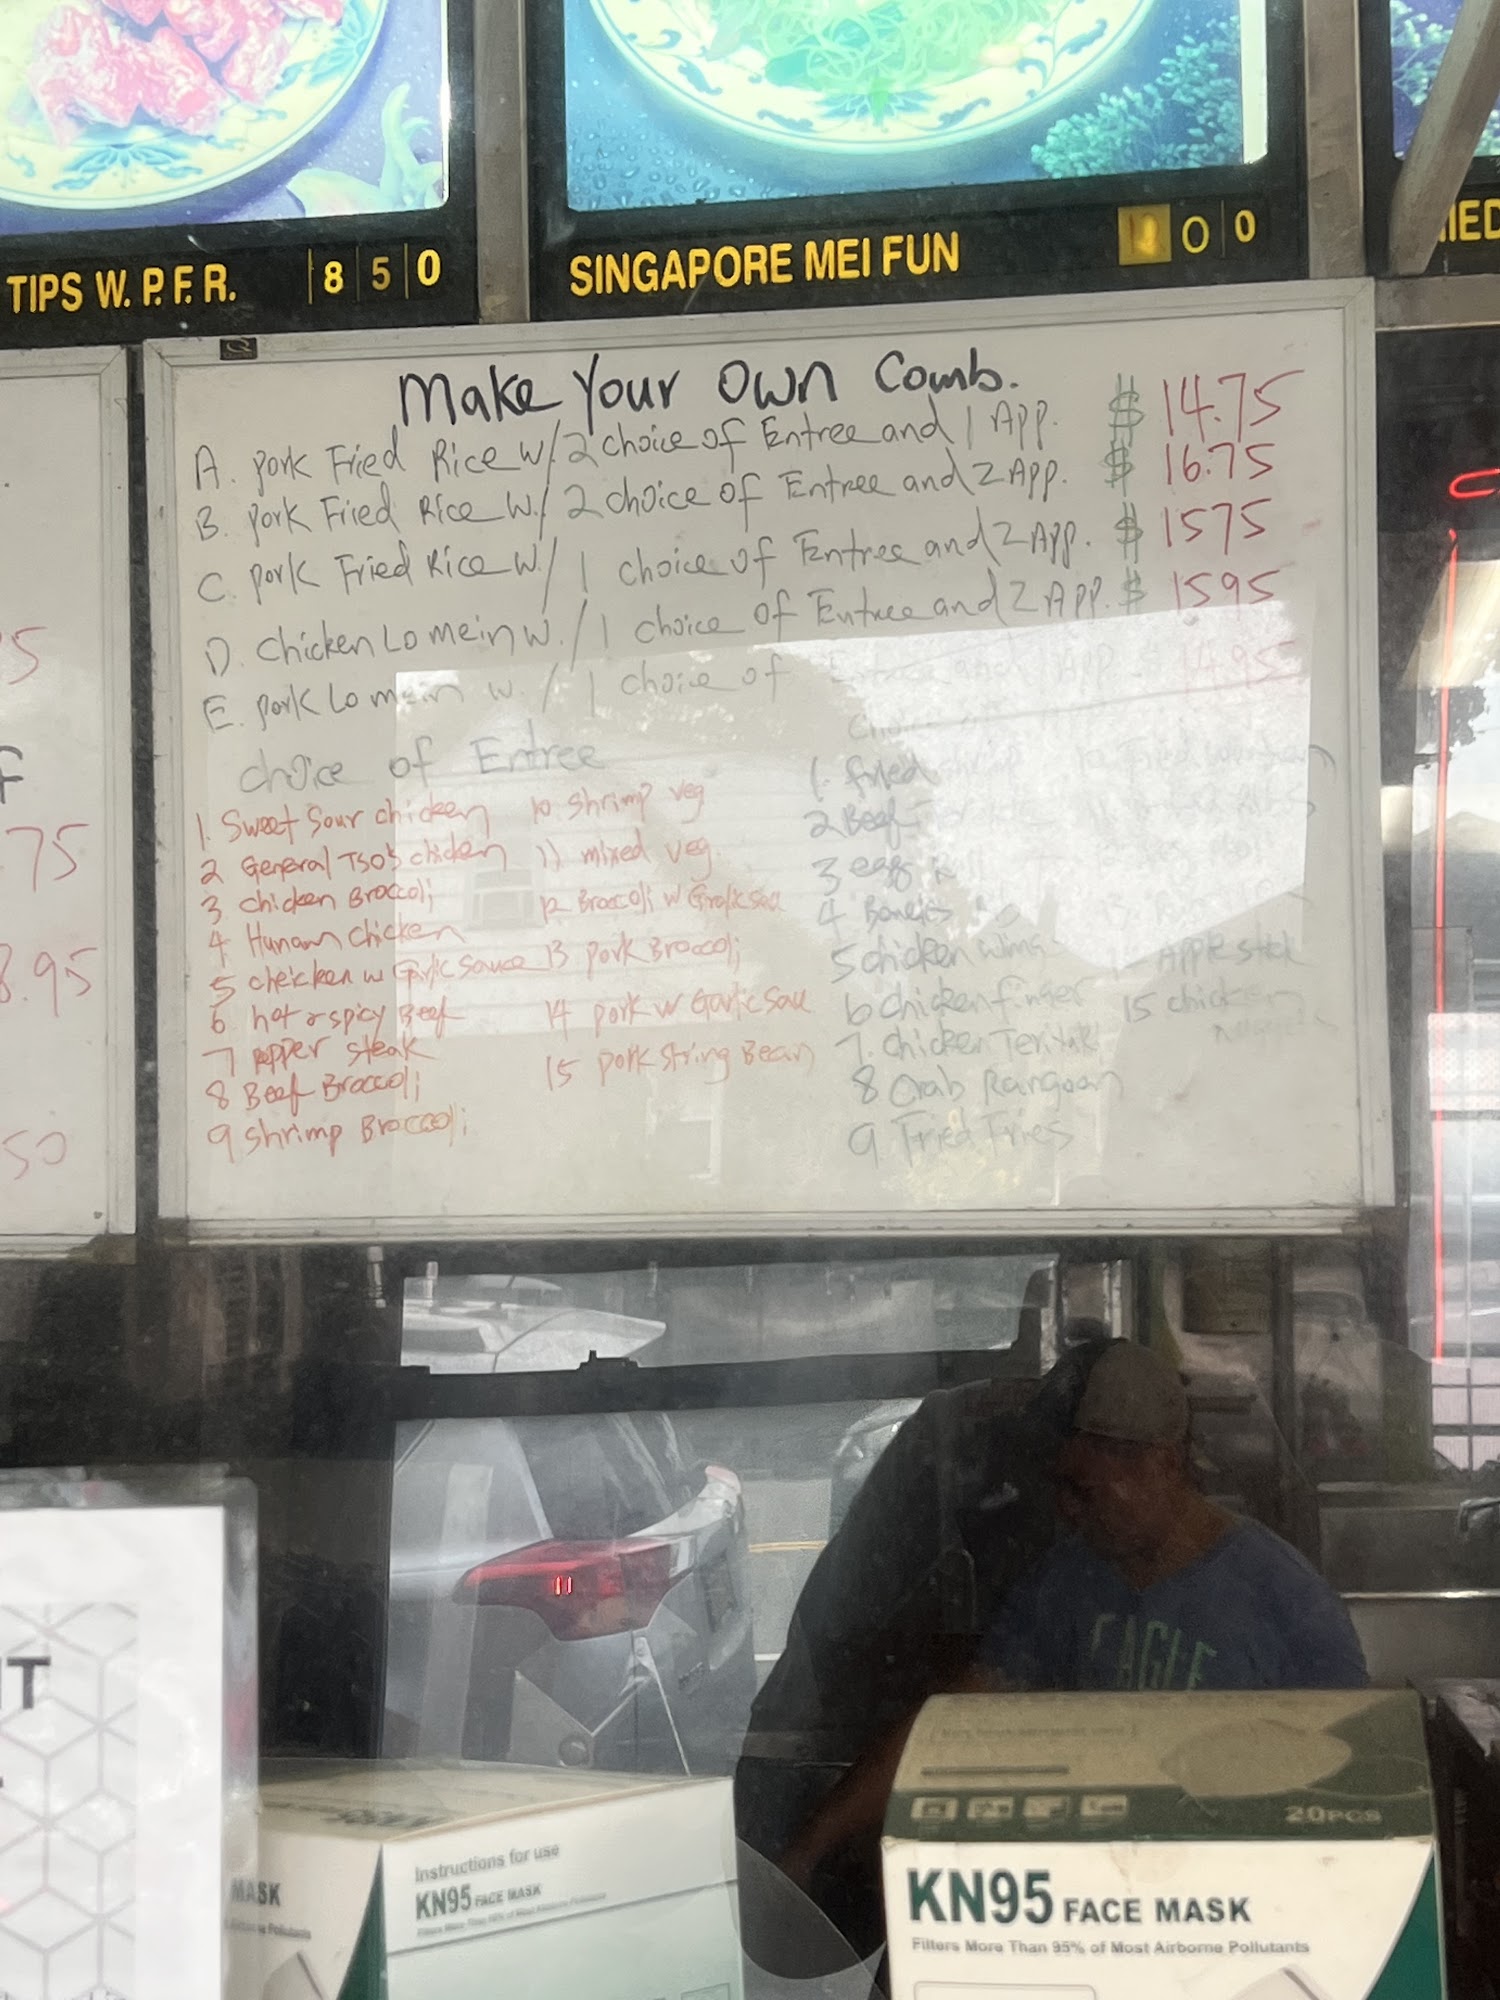 TIPS W. P. F. R. 8 5 0
SINGAPORE MEI FUN 0 0
Make Your Own Comb.
A. pork Fried Rice w/ 2 choice of Entree and 1 App. $ 14.75
B. pork Fried Rice w/ 2 choice of Entree and 2 App. $ 16.75
C. pork Fried Rice w/ 1 choice of Entree and 2 App. $ 1575
D. chicken Lo mein w./ 1 choice of Entree and 2 App. $ 1595
E. pork Lo mein w. / 1 choice of Entree and 1 App. $ 14.95
choice of Entree
1. Sweet Sour chicken
2 General TSO's chicken
3 chicken Broccoli
4 Hunan chicken
5 cheicken w Garlic sauce
6 hot & spicy Beef
7 pepper steak
8 Beef Broccoli
9 shrimp Broccoli
10 shrimp veg
11 mixed veg.
12 Broccoli w Gralic sau
13 pork Broccoli
14 pork w Garlic sau
15 pork string Bean
choice of
1. fried shrimp
2 Beef
3 egg Roll
4 Boneles
5 chicken wing
6 chicken finger
7. chicken Teriyaki
8 Crab Rangoon
9 Fried Fries
10 Fried wonton
Apple stick
15 chicken
5
75
8.95
50
IED
MASK
Instructions for use
KN95 FACE MASK
EAGLE
20PCS
KN95 FACE MASK
Filters More Than 95% of Most Airborne Pollutants